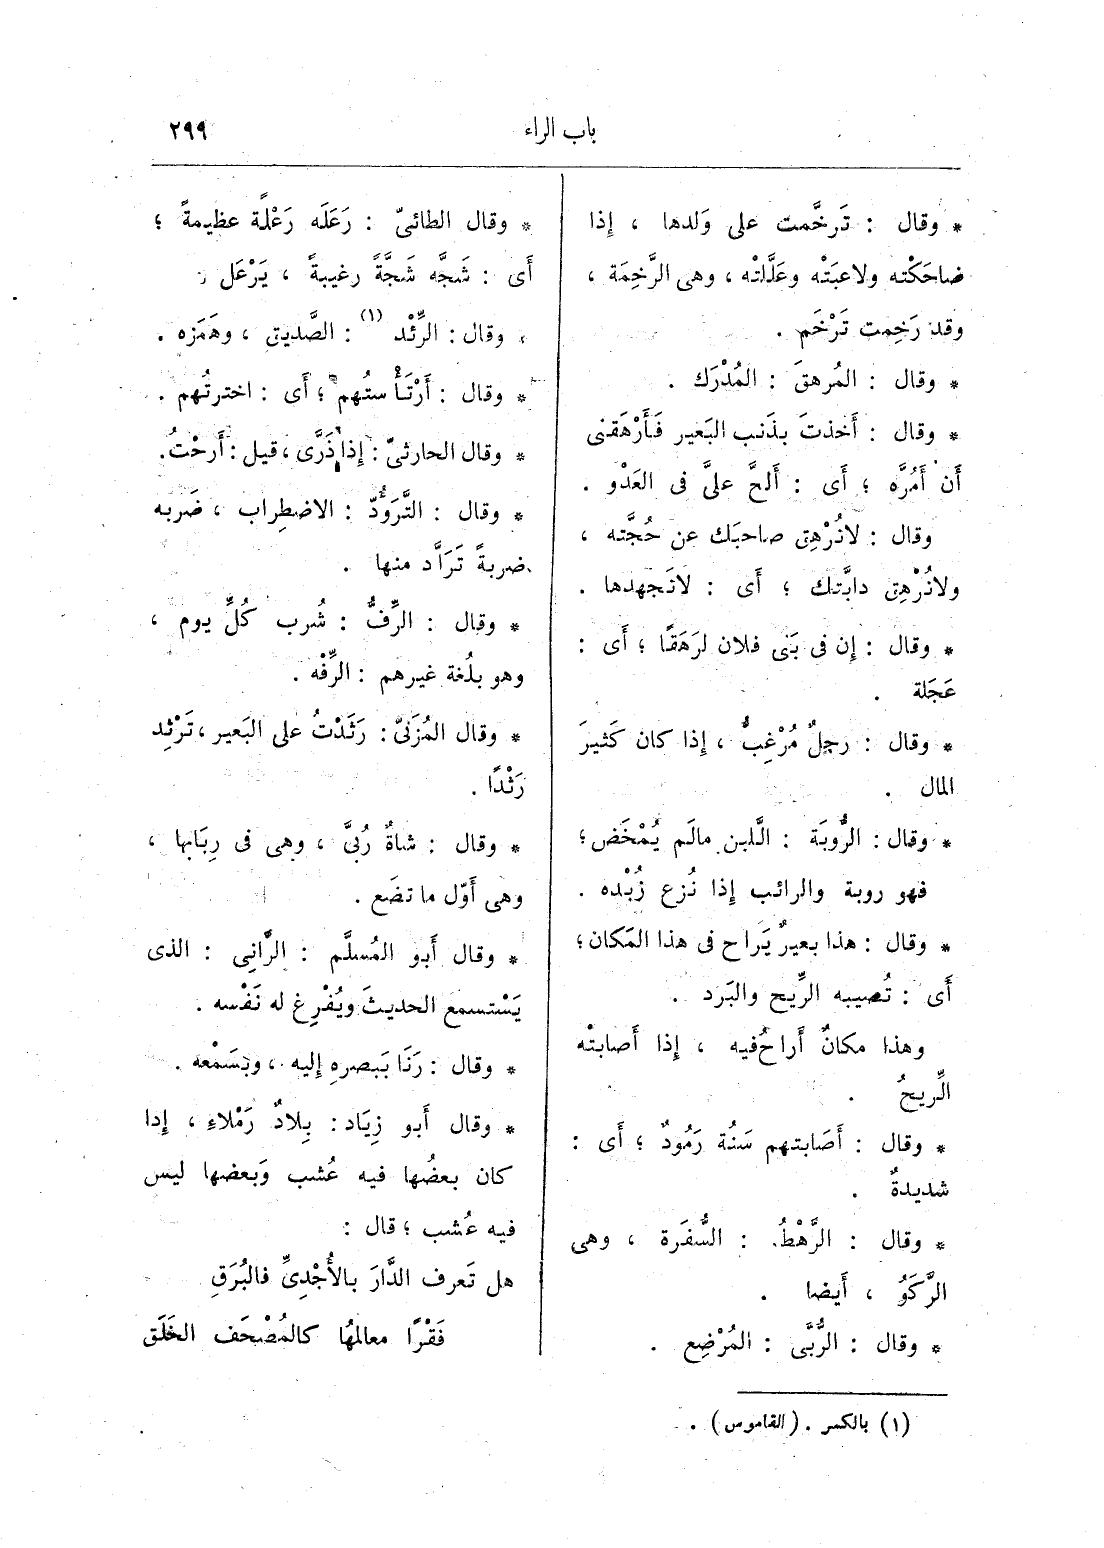 باب الراء
٢٩٩
* وقال : تَرخَّمت على وَلدها ، إذا
ضاحَكْته ولاعبَتْه وعَلَّلتْه ، وهى الرَّخِمَة ،
وقد رَخِمت تَرْخَم .
* وقال : المُرهقَ : المُدْرَك .
* وقال : أَخذتَ بذَنب البَعير فَأَرْهَقنى
أَن أَمُرَّه ؛ أَى : أَلحَّ علىَّ فى العَدْو .
وقال : لاتُرْهِق صاحبَك عن حُجَّته ،
ولاتُرْهِق دابَّتك ؛ أَى : لاتَجهدها .
* وقال : إن فى بَنى فلان لرَهَقًا ؛ أَى :
عَجَلة .
* وقال : رجلٌ مُرْغِبٌ ، إذا كان كَثيرَ
المال .
* وقال : الرُّوبَة : الَّلبن مالَم يُمْخَض ؛
فهو روبة والرائب إذا نُزع زُبْده .
* وقال : هذا بعيرٌ يَراح فى هذا المَكان ؛
أَى : تُصيبه الرِّيح والبَرد .
وهذا مكانٌ أَراحُ فيه ، إذا أَصابتْه
الرِّيحُ .
* وقال : أَصَابتهم سَنُة رَمُودٌ ؛ أَى :
شديدةٌ .
* وقال : الرَّهْطُ : السُّفَرة ، وهى
الرَّكَوُ ، أَيضا .
* وقال : الرُّبَّى : المُرْضِع .
* وقال الطائىّ : رَعَلَه رَعْلًة عظيمةً ؛
أَى : شَجَّه شَجَّةً رغيبةً ، يَرْعَل .
* وقال : الرِّئْد (١) : الصَّديق ، وهَمَزه .
* وقال : أَرْتَأْستُهم ؛ أَى : اخترتُهم .
* وقال الحارثىّ : إذا ذَرَّى ، قيل : أَرحْتُ .
* وقال : التَّرَوُّدّ : الاضطِراب ، ضَربه
ضربةً تَرَأَّد منها .
* وقال : الرِّفُّ : شُرب كُلِّ يوم ،
وهو بلُغة غيرهم : الرِّفْه .
* وقال المُزَنىّ : رَثَدْتُ على البَعير ، تَرْثِد
رَثْدًا .
* وقال : شاةٌ رُبىَّ ، وهى فى رِبَابها ،
وهى أَوّل ما تضَع .
* وقال أَبو المُسلَّم : الرَّانِى : الذى
يَسْتسمع الحديثَ ويُفْرِغ له نَفْسه .
* وقال : رَنَا ببَصرهِ إليه ، وبسَمْعه .
* وقال أَبو زِيَاد : بِلادٌ رَمْلاءِ ، إدا
كان بعضُها فيه عُشب وَبعضها ليس
فيه عُشب ؛ قال :
هل تَعرف الدَّارَ بالأُجْدِىِّ فالبُرَقِ
فَقْرًا معالمهُا كالمُصْحَف الخَلَق
(١) بالكسر . (القاموس) .